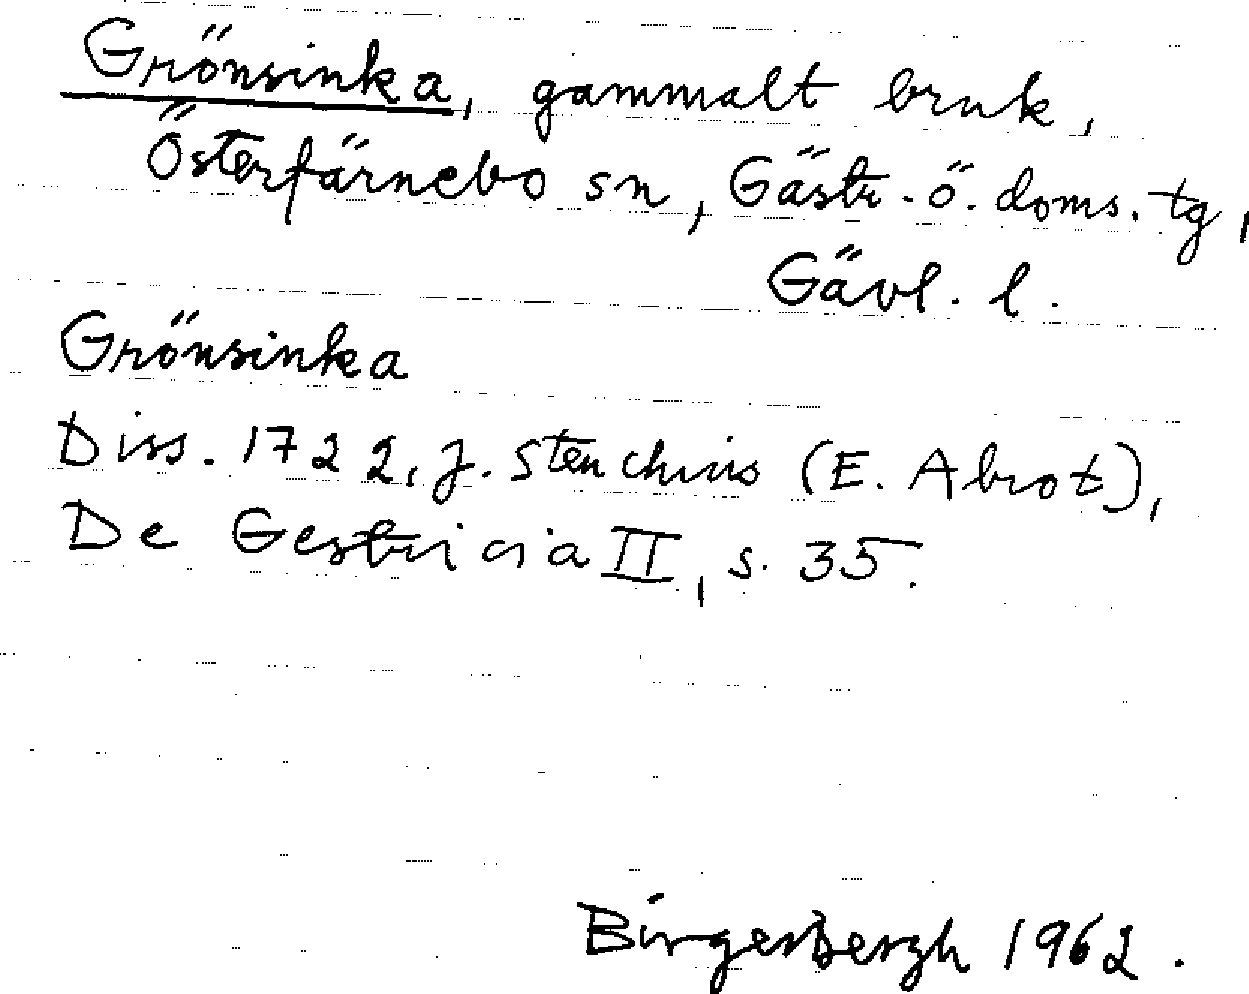 Grönsinka, gammalt bruk,
Österfärnebo sn, Gästr.ö.doms.tg,
Gävl. l.
Grönsinka
Diss. 1722, J. Stenchius (E. Abrot),
De Gestricia II, s. 35.
Birger Bergh 1962.